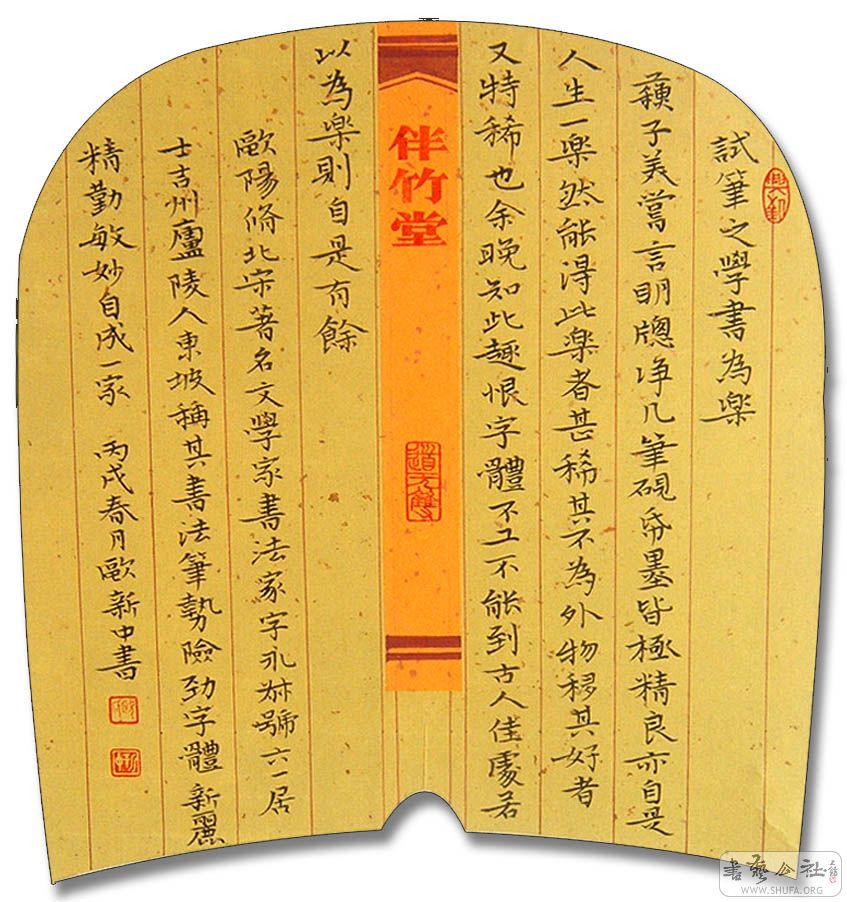 試筆之學書為楽
蘓子美嘗言明牕净几筆硯帋墨皆極精良亦自是
人生一楽然能得此楽者甚稀其不為外物移其好者
又特稀也余晚知此趣恨字體不工不能到古人佳處若
伴竹堂
以為楽則自是有餘
歐陽脩北宋著名文學家書法家字永叔號六一居
士吉州廬陵人東坡稱其書法筆勢險勁字體新麗
精勤敏妙自成一家 丙戌春月歐新中書
書藝公社
WWW.SHUFA.ORG